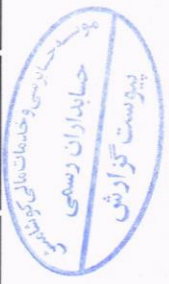 موسسه حسابرسی و خدمات مالی
حسابداران رسمی
پیوست گزارش